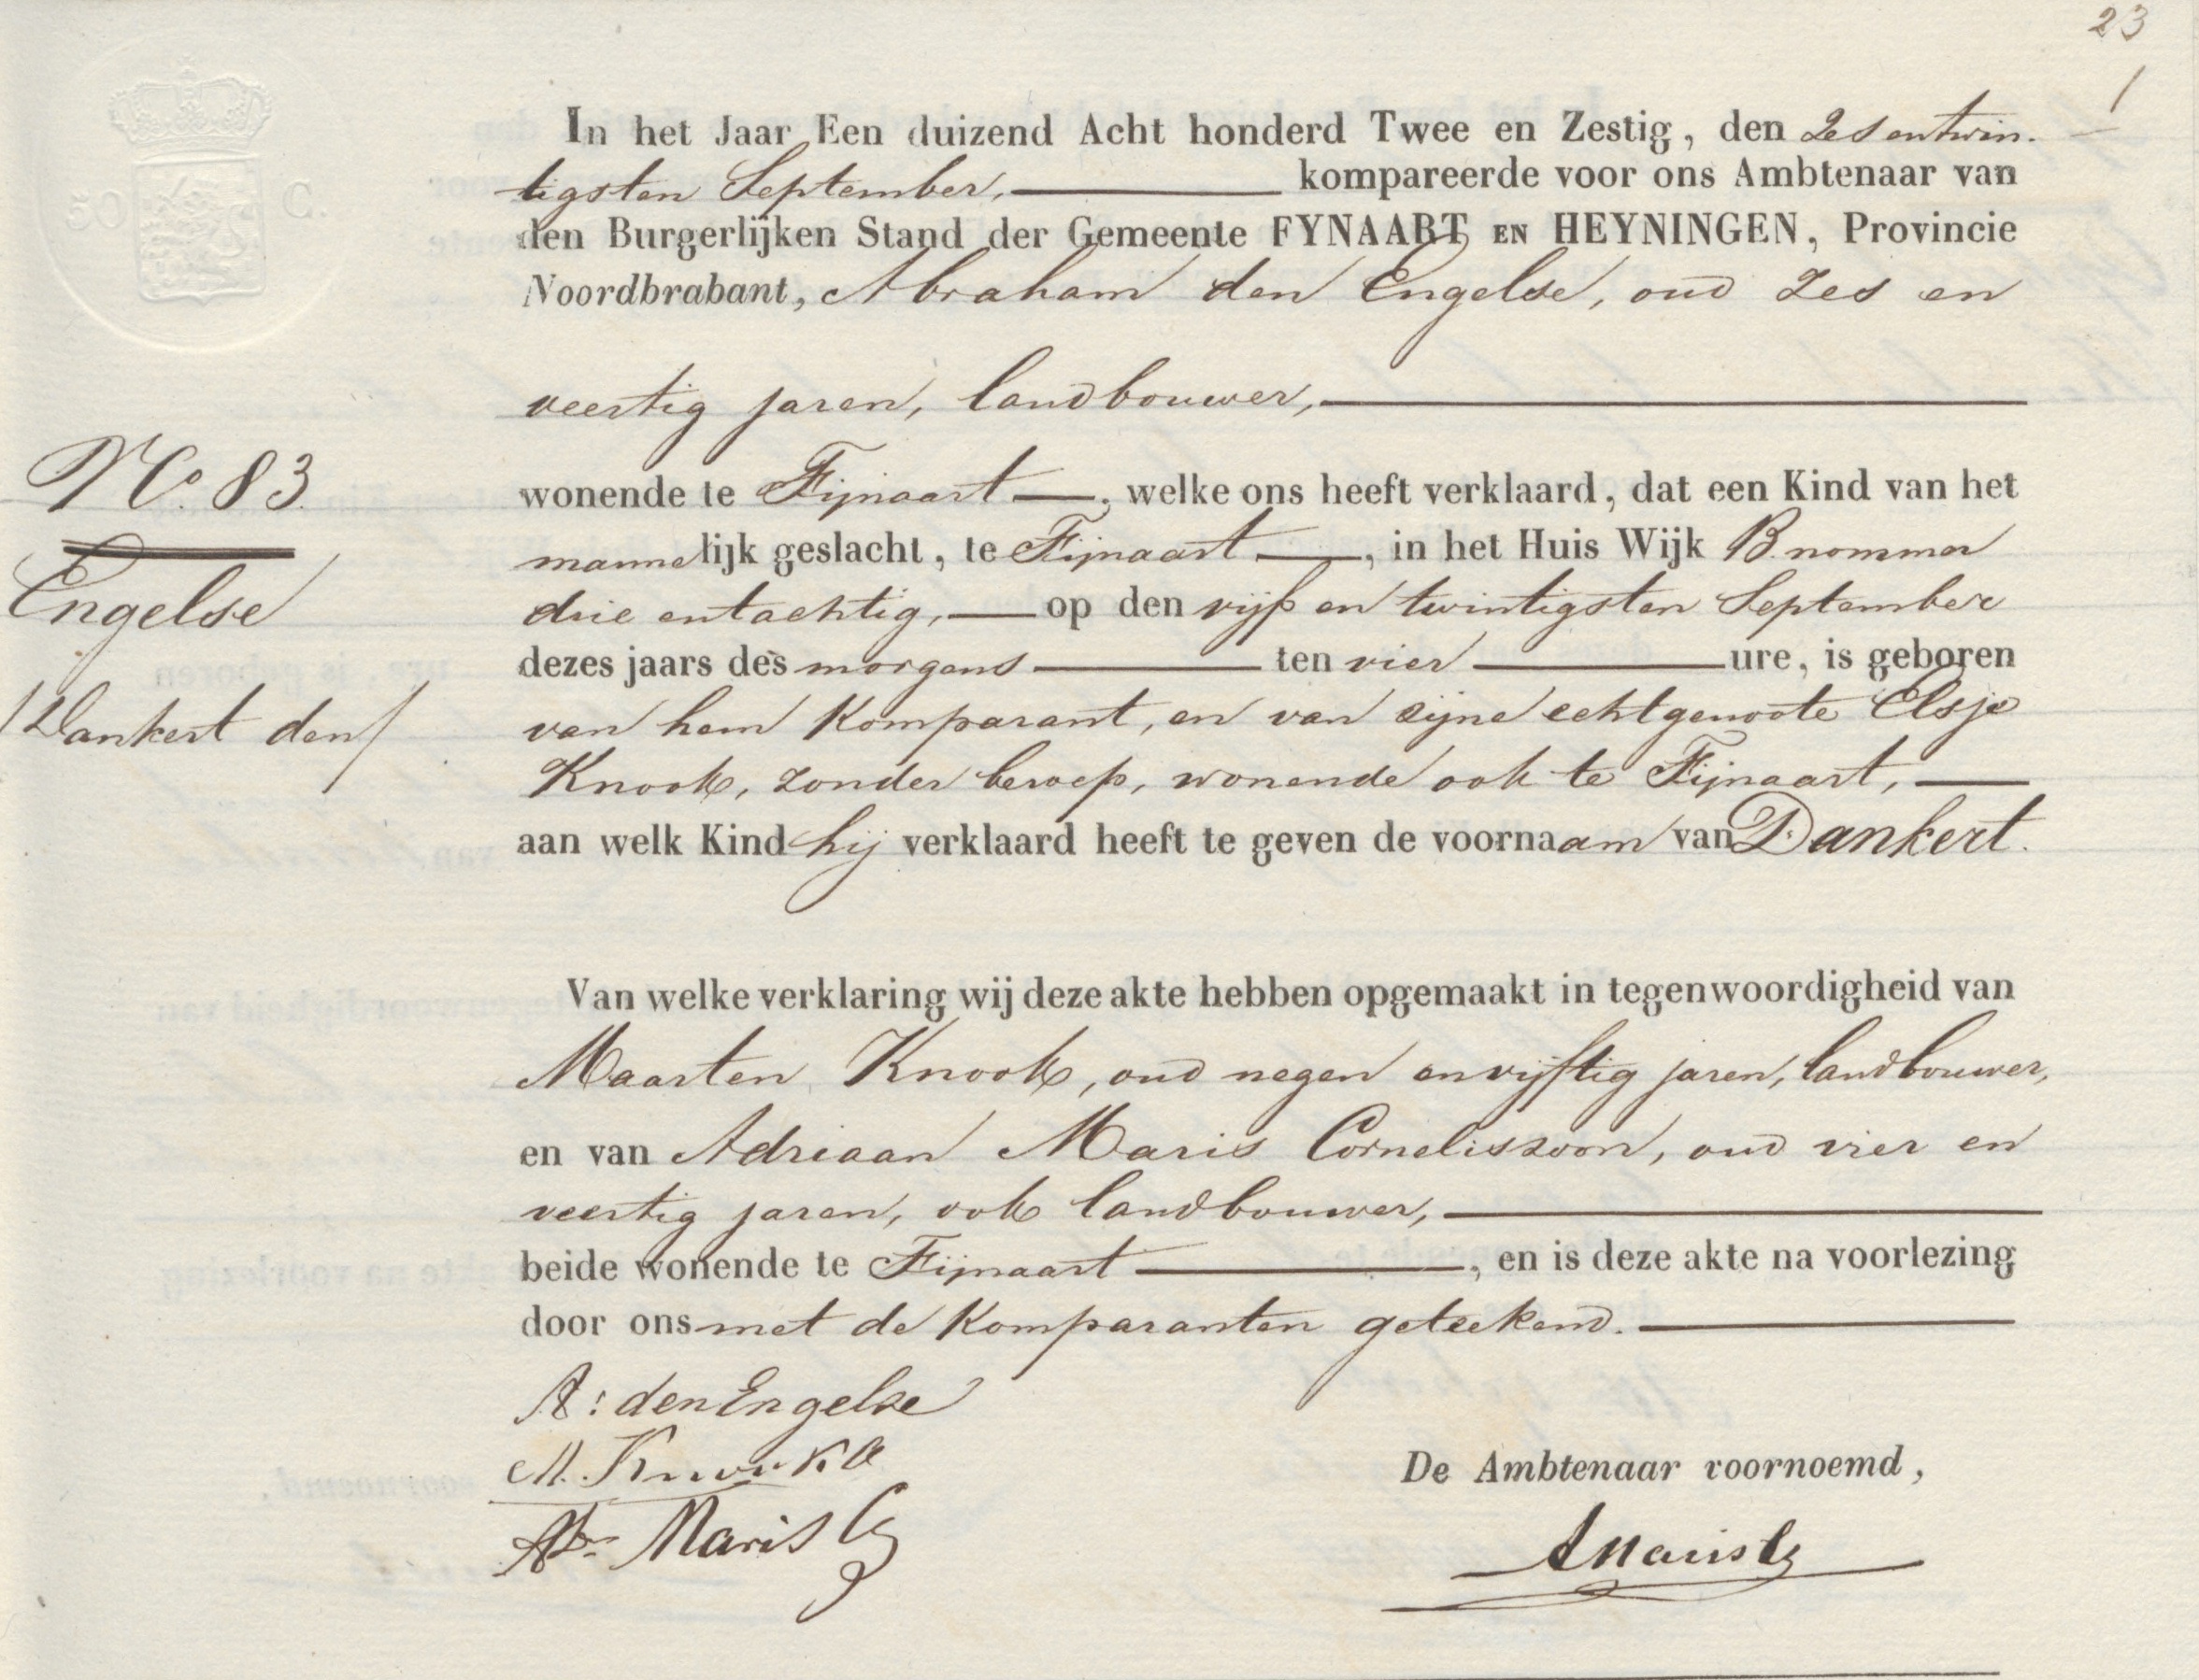 23
1
50 C.
In het Jaar Een duizend Acht honderd Twee en Zestig, den zesentwin-
tigsten September, kompareerde voor ons Ambtenaar van
den Burgerlijken Stand der Gemeente FYNAART EN HEYNINGEN, Provincie
Noordbrabant, Abraham den Engelse, oud zes en
veertig jaren, landbouwer,
No. 83.
wonende te Fijnaart, welke ons heeft verklaard, dat een Kind van het
mannelijk geslacht, te Fijnaart, in het Huis Wijk B. nommer
Engelse
drie entachtig, op den vijf en twintigsten September
dezes jaars des morgens ten vier ure, is geboren
/Dankert den/
van hem Komparant, en van zijne echtgenoote Elsje
Knook, zonder beroep, wonende ook te Fijnaart,
aan welk Kind hij verklaard heeft te geven de voornaam van Dankert.
Van welke verklaring wij deze akte hebben opgemaakt in tegenwoordigheid van
Maarten Knook, oud negen envijftig jaren, landbouwer,
en van Adriaan Maris Corneliszoon, oud vier en
veertig jaren, ook landbouwer,
beide wonende te Fijnaart, en is deze akte na voorlezing
door ons met de Komparanten geteekend.
A: den Engelse
M. Knook
Adr. Maris Cz
De Ambtenaar voornoemd,
A Maris Cz